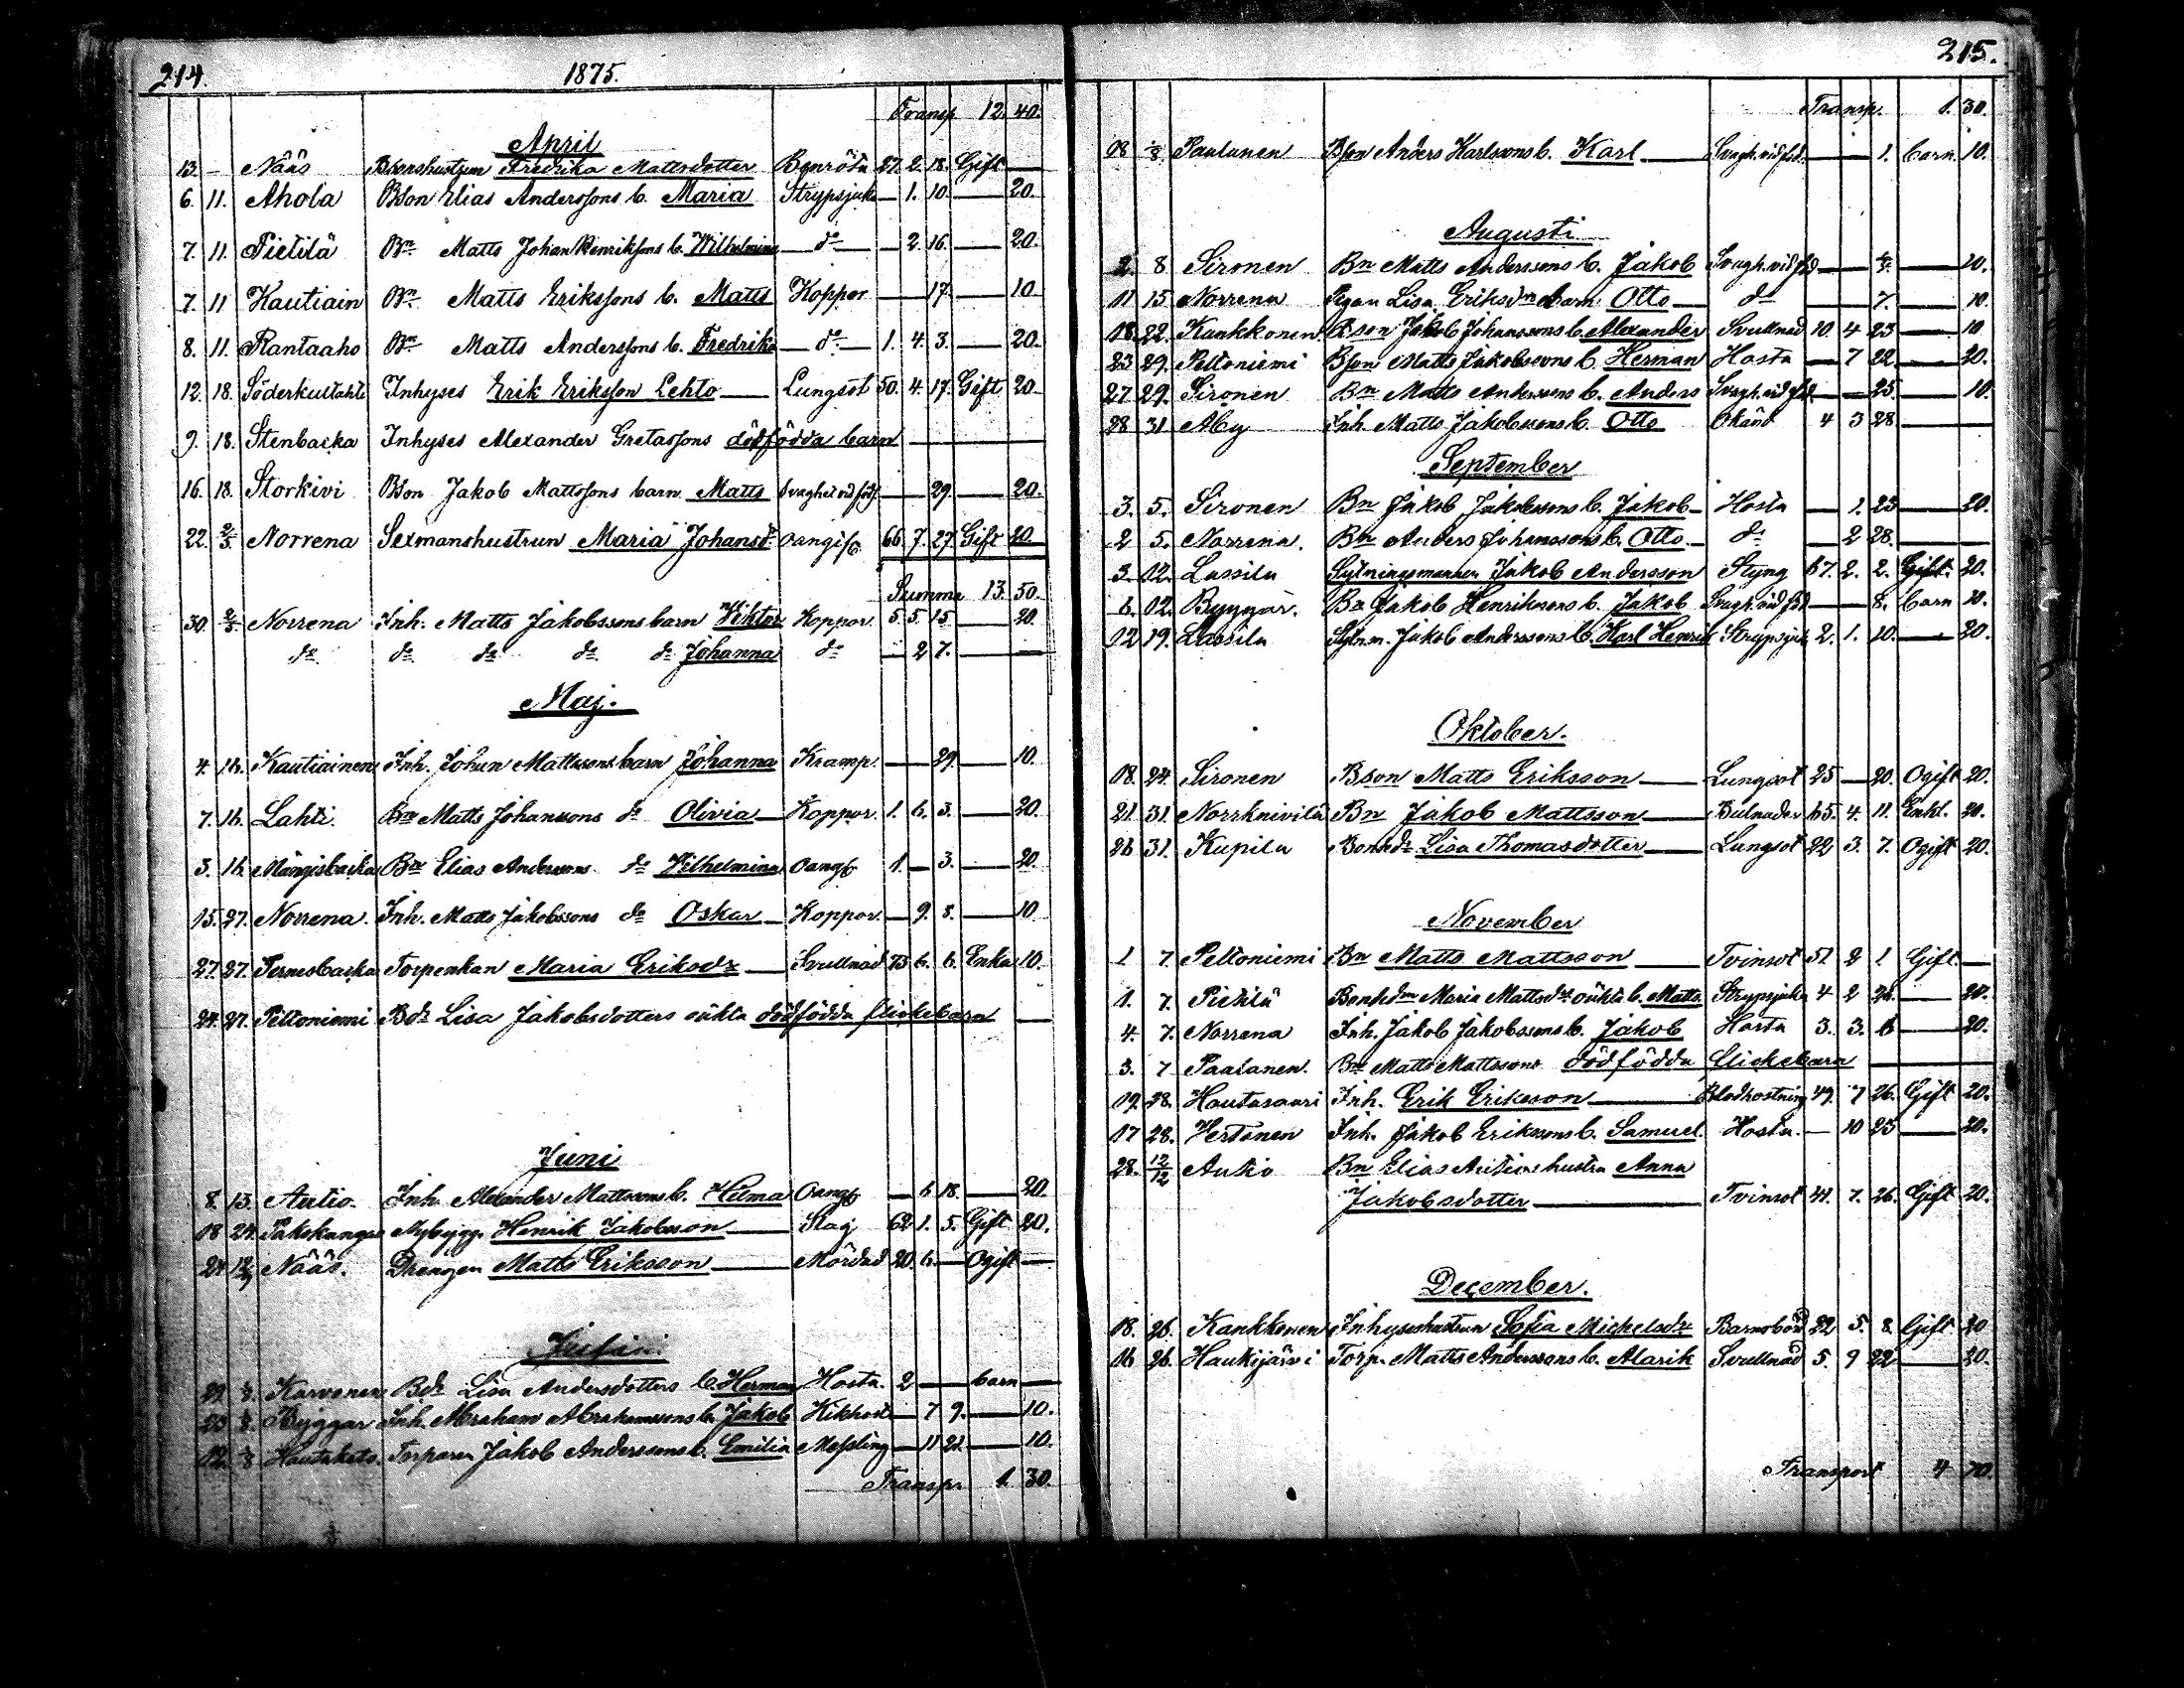 214. 1875.
Transp. 12. 40.
April
13. — Nääs Bondhustrun Fredrika Mattsdotter Benröta 27. 2. 18. Gift —
6. 11. Ahola Bson Elias Anderssons b. Maria Strypsjuka — 1. 10. — 20.
7. 11. Pietilä Bn Matts Johan Henrikssons b. Wilhelmina do — 2. 16. — 20.
7. 11 Kautiain Bn Matts Erikssons b. Matts Koppor — 17. — 10.
8. 11. Rantaaho Bn Matts Anderssons b. Fredrika do 1. 4. 3. — 20.
12. 18. Söderkultalahti Inhyses Erik Eriksson Lehto Lungsot 50. 4. 17. Gift 20.
9. 18. Stenbacka Inhyses Alexander Gretassons dödfödda barn —
16. 18. Storkivi Bson Jakob Mattssons barn Matts Svaghet vid föds. — 29. — 20.
22. 2/5 Norrena Sexmanshustrun Maria Johansdr oangifv. 66. 7. 27. Gift 20.
Summa 13. 50.
30. 2/5 Norrena Inh. Matts Jakobssons barn Viktor Koppor. 5. 5. 15. — 20.
do do do do do Johanna do — 2 7. — —
Maj.
4. 16. Kautiainen Inh. Johan Mattssons barn Johanna Kramp. — 29. — 10.
7. 16. Lahti. Bn Matts Johanssons do Olivia Koppor. 1. 6. 3. — 20.
3. 16. Mängsbacka Bn Elias Anderssons do Vilhelmina oangf. 1. — 3. — 20.
15. 27. Norrena. Inh. Matts Jakobssons do Oskar Koppor. — 9. 8. — 10.
27. 27. Ternesbacka Torpenkan Maria Eriksdr Svullnad 75 6. 6. Enka 10.
24. 27. Peltoniemi Bdr Lisa Jakobsdotters oäkta dödfödda flickebarn —
Juni
8. 13. Autio. Inh. Alexander Mattssons b. Hilma Oangf. — 6 18. — 20.
18 24. Pakokangas Nybygg. Henrik Jakobsson Slag 62 1. 5. Gift 20.
24 12/9 Nääs. Drengen Matts Eriksson Mördad 20. 6. — Ogift —
Juli
29. 1/8. Karvonen Bdr Lisa Andersdotters b. Herman Hosta. 2 — — barn —
23 1/8. Byggar Inh. Abraham Abrahamssons b. Jakob Kikhost — 7 9. — 10.
12. 1/8 Hautakato. Torparen Jakob Anderssons b. Emilia Messling — 11 21. — 10.
Transp. 1. 30.
215.
Transp. 1. 30.
18 1/8. Paalanen Bson Anders Karlssons b. Karl Svagh. vid föd. — — 1. barn. 10.
Augusti
2. 8 Sironen Bn Matts Anderssons b. Jakob Svagh. vid föd — 10.
11 15. Norrena Pigan Lisa Eriksdrs barn Otto do 7. — 10.
18. 22. Kankkonen Bson Jakob Johanssons b. Alexander Svullnad 10 4 23 — 10
23 29. Peltoniemi Bson Matts Jakobssons b. Herman Hosta — 7 22. — 20.
27 29. Sironen Bn Matts Anderssons b. Anders Svagh. vid föd — 25. — 10.
28 31 Aby Inh. Matts Jakobssons b. Otto Okänd 4 3 28 —
September
3. 5. Sironen Bn Jakob Jakobssons b. Jakob Hosta — 1. 23 — 20.
2 5. Norrena. Bn Anders Johanssons b. Otto do — 2 28. —
3. 12. Lassila Sytningsmannen Jakob Andersson Styng 67. 2. 2. Gift. 20.
6. 12. Byggar. Bn Jakob Henrikssons b. Jakob Svagh. vid föd. — 8. barn 10.
12 19. Lassila Sytn.m. Jakob Anderssons b. Karl Henrik Strypsjuk 2. 1. 10. — 20.
Oktober.
18. 24. Sironen Bson Matts Eriksson Lungsot 25 — 20. Ogift 20.
21. 31. Norrknivilä Bn Jakob Mattsson Bulnader 65. 4. 11. Enkl. 20.
26 31. Kupila Bondr Lisa Thomasdotter Lungsot 22 3. 7. Ogift 20.
November
1 7. Peltoniemi Bn Matts Mattsson Tvinsot 51. 2 1 Gift —
1. 7. Pietilä Maria Mattsdrs oäkta b. Matts Strypsjuka 4 2 — 20.
4. 7. Norrena Inh. Jakob Jakobssons b. Jakob Hosta 3. 3. 6 — 20.
3. 7 Paalanen. Bn Matts Mattssons dödfödda flickebarn —
19. 28. Hautasaari Inh. Erik Eriksson Blodhostning 49. 7 26. Gift 20.
17 28. Hertonen Inh. Jakob Erikssons b. Samuel Hosta. — 10 25 — 20.
28. 12/12 Autio Bn Elias Autios hustru Anna
Jakobsdotter Tvinsot 41. 7. 26. Gift 20.
December.
18. 26. Kankkonen Inhyseshustrun Sofia Michelsdr Barnsbörd 22 5. 8. Gift 20
16 26. Haukijärvi Torp. Matts Anderssons b. Alarik Svullnad 5. 9 22 — 20.
Transport 4 70.